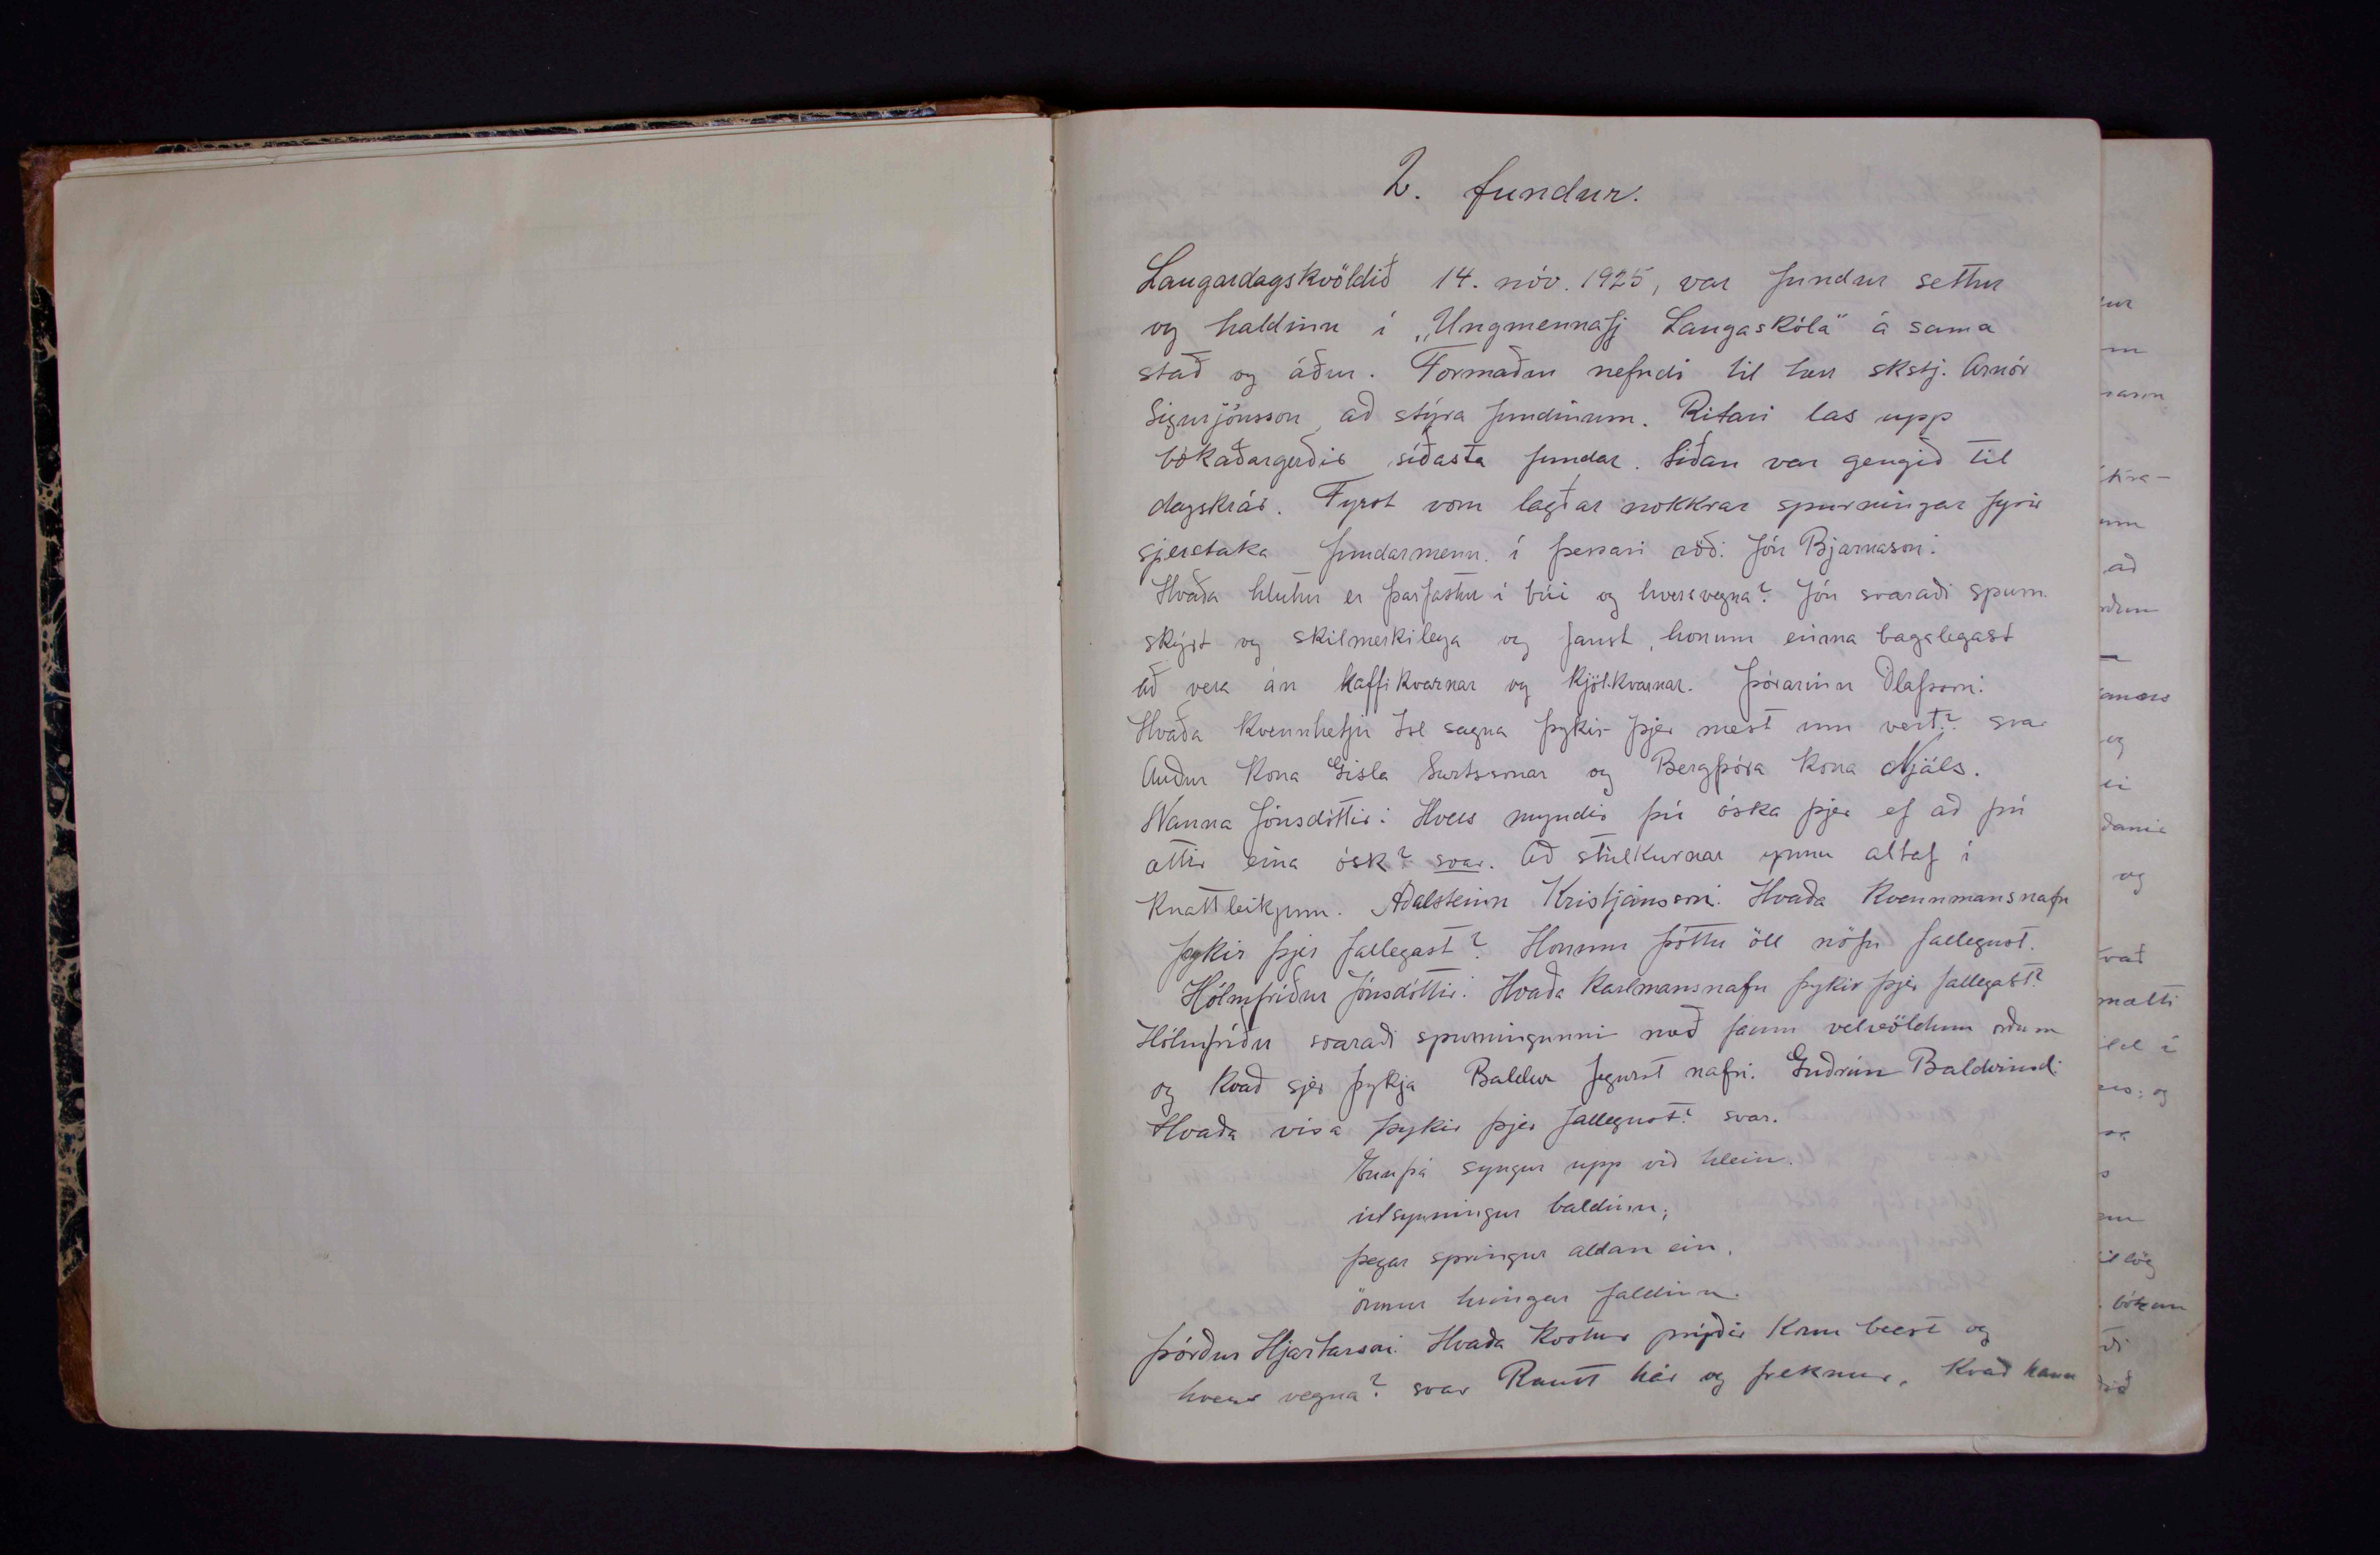 2. fundur.
Laugardagskvöldið 14. nóv. 1925, var fundur settur
og haldinn í „Ungmennafj Laugaskóla" á sama
stað og áður. Formaður nefndi til hr skstj. Arnór
Sigurjónsson, að stýra fundinum. Ritari las upp
bókaðargerðir síðasta fundar. Síðan var gengið til
dagskrár. Fyrst voru lagðar nokkrar spurningar fyrir
sjerstaka fundarmenn. í þessari röð: Jón Bjarnason:
Hvaða hlutur er þarfastur í búi og hversvegna? Jón svaraði spurn.
skýrt og skilmerkilega og fanst, honum einna bagalegast
að vera án kaffikvarnar og kjötkvarnar. Þórarinn Ólafsson:
Hvaða kvennhetju Ísl sagna þykir þjer mest um vert? svar
Auður kona Gísla Surtssonar og Bergþóra kona Njáls.
Nanna Jónsdóttir: Hvers myndir þú óska þjer ef að þú
ættir eina ósk? svar. Að stúlkurnar ynnu altaf í
knattleikjum. Aðalsteinn Kristjánsson: Hvaða kvennmansnafn
þykir þjer fallegast? Honum þóttu öll nöfn fallegust.
Hólmfríður Jónsdóttir: Hvaða karlmansnafn þykir þjer fallegast?
Hólmfríður svaraði spurningunni með fáum velvöldum orðum
og kvað sjer þykja Baldur fegurst nafn. Guðrún Baldvinsd:
Hvaða vísa þykir þjer fallegust? svar.
Ennþá syngur upp við hlein.
útsynningur baldinn;
þegar springur aldan ein,
önnur hringar faldinn.
Þórður Hjartarson: Hvaða kostur prýðir konu best og
hvers vegna? svar Rautt hár og freknur, kvað hann